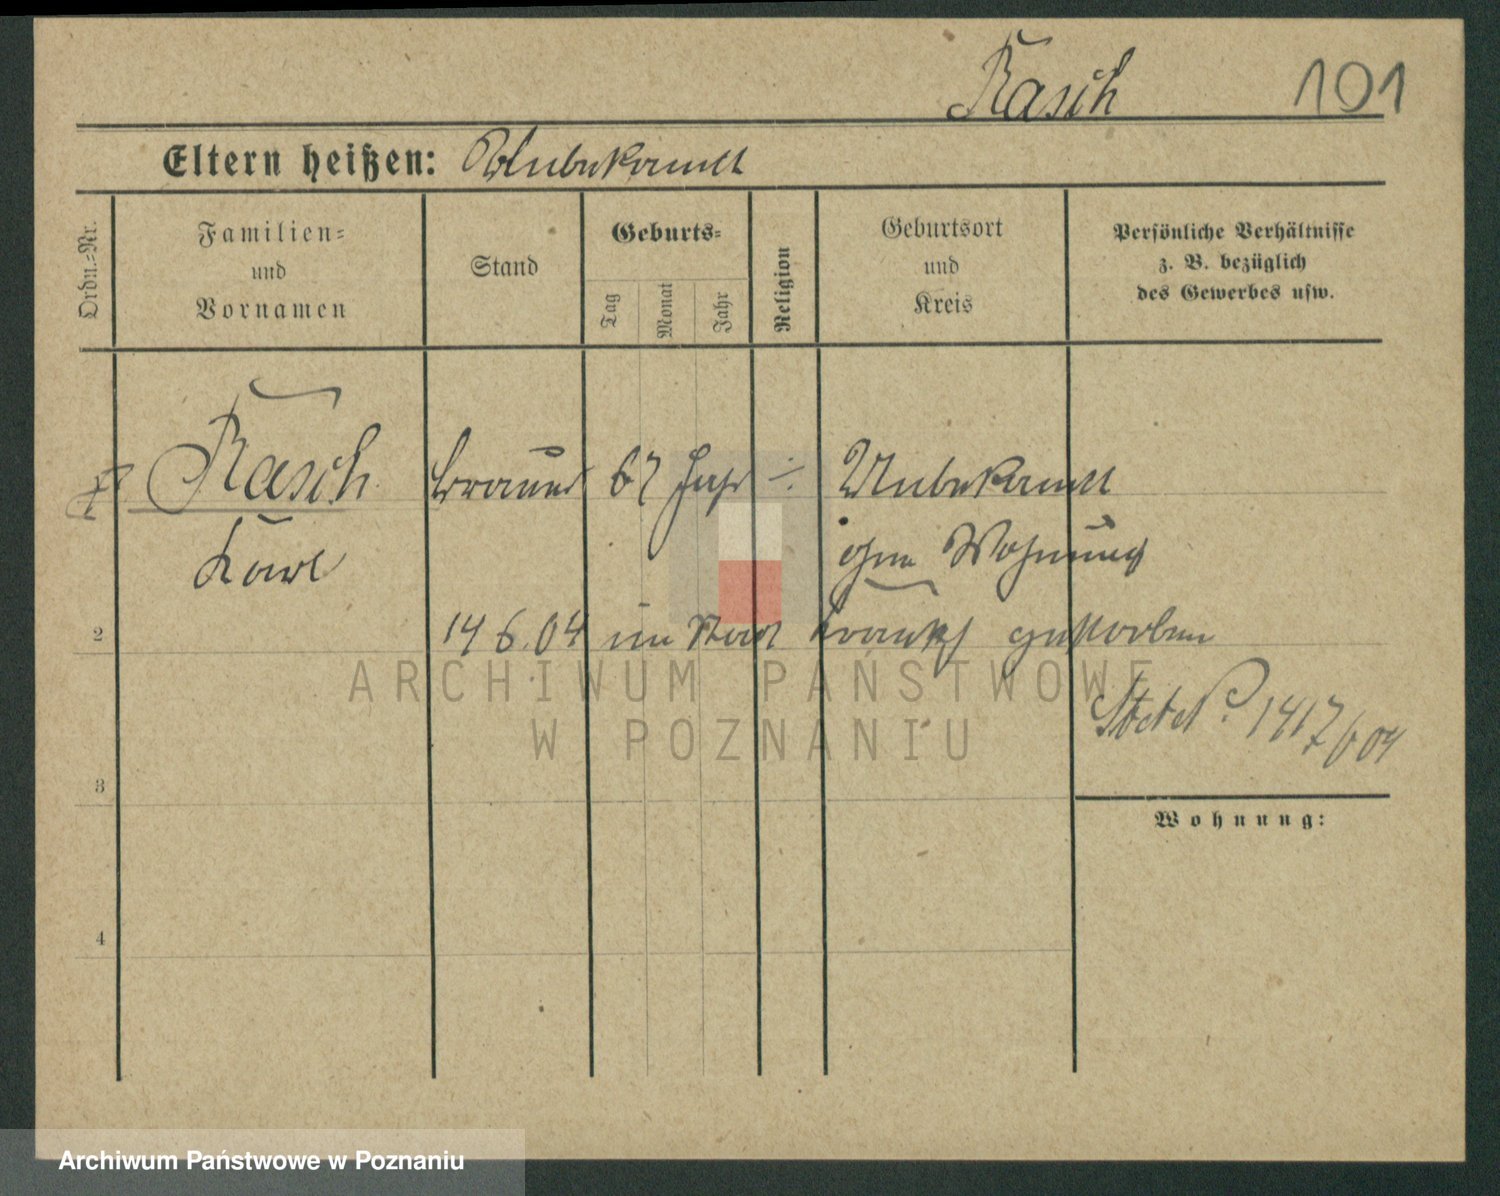 Rasch 101
Eltern heißen: Unbekannt
Ordn.-Nr.
Familien-
und
Vornamen
Stand
Geburts-
Tag
Monat
Jahr
Religion
Geburtsort
und
Kreis
Persönliche Verhältnisse
z. B. bezüglich
des Gewerbes usw.
Rasch Brauer 67 Jahr ./. Unbekannt
Karl ohne Wohnung
2 14 6.04 im Stadt krankhs gestorben
1417/6 04
3
Wohnung:
4
ARCHIWUM PAŃSTWOWE
W POZNANIU
Archiwum Państwowe w Poznaniu